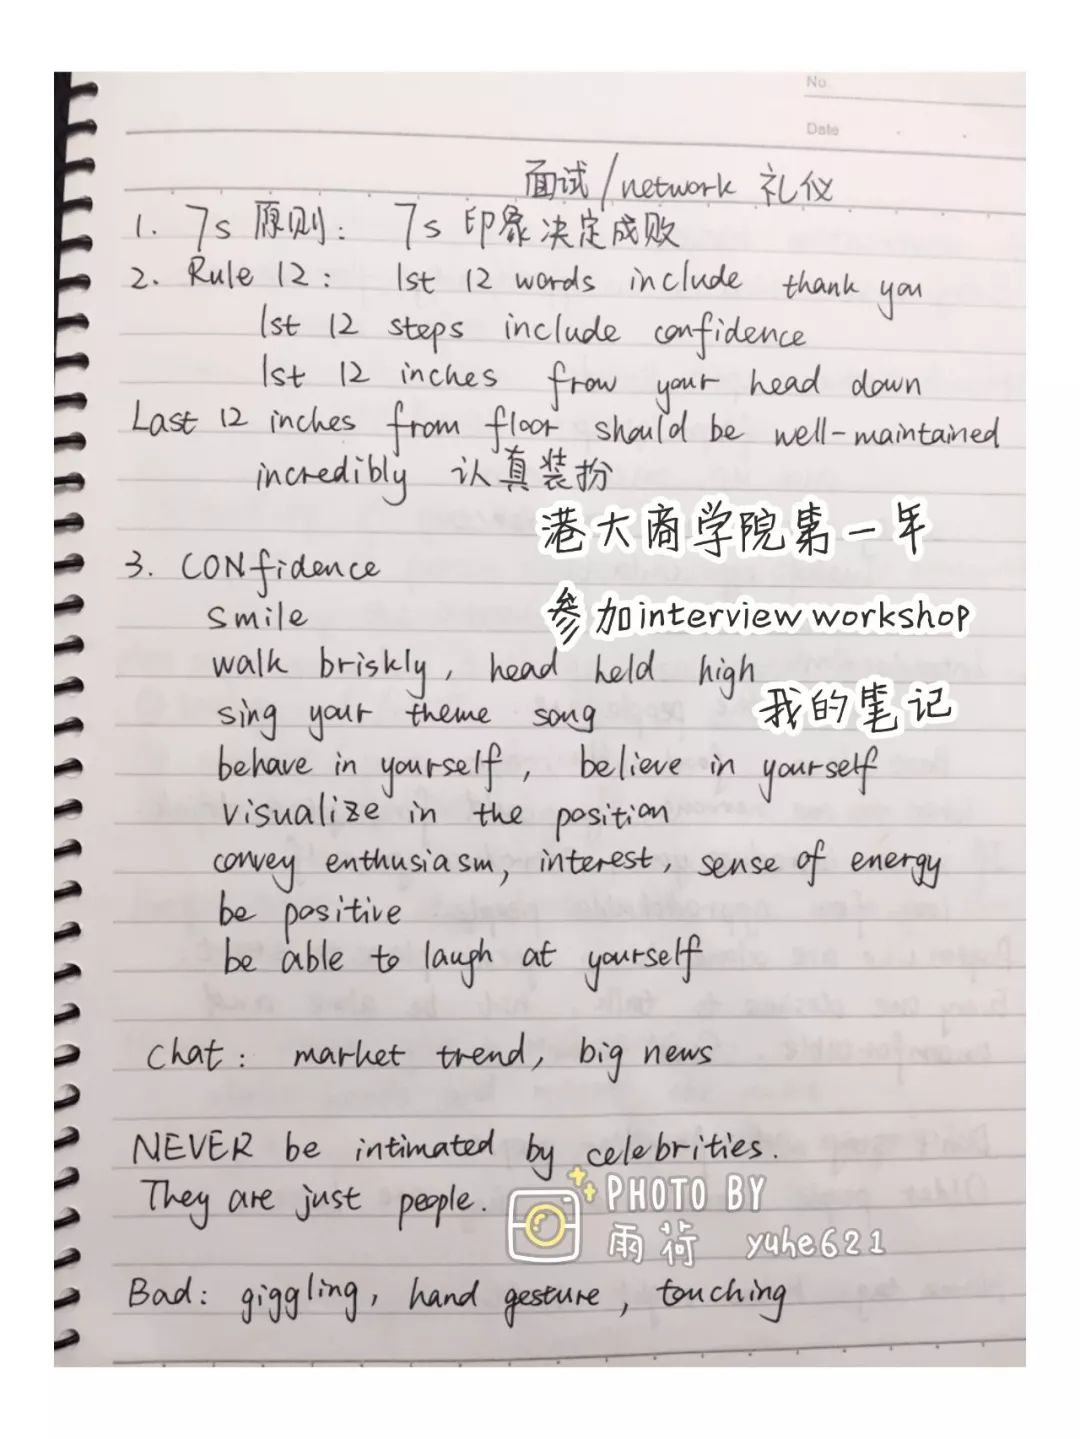 No.
Date
面试/network 礼仪
1. 7s 原则: 7s 印象决定成败
2. Rule 12: 1st 12 words include thank you
1st 12 steps include confidence
1st 12 inches from your head down
Last 12 inches from floor should be well-maintained
incredibly 认真装扮
港大商学院第一年
3. CONfidence
smile
参加interview workshop
walk briskly, head held high
我的笔记
sing your theme song
behave in yourself, believe in yourself
visualize in the position
convey enthusiasm, interest, sense of energy
be positive
be able to laugh at yourself
Chat: market trend, big news
NEVER be intimated by celebrities.
They are just people.
PHOTO BY
雨荷 yuhe621
Bad: giggling, hand gesture, touching